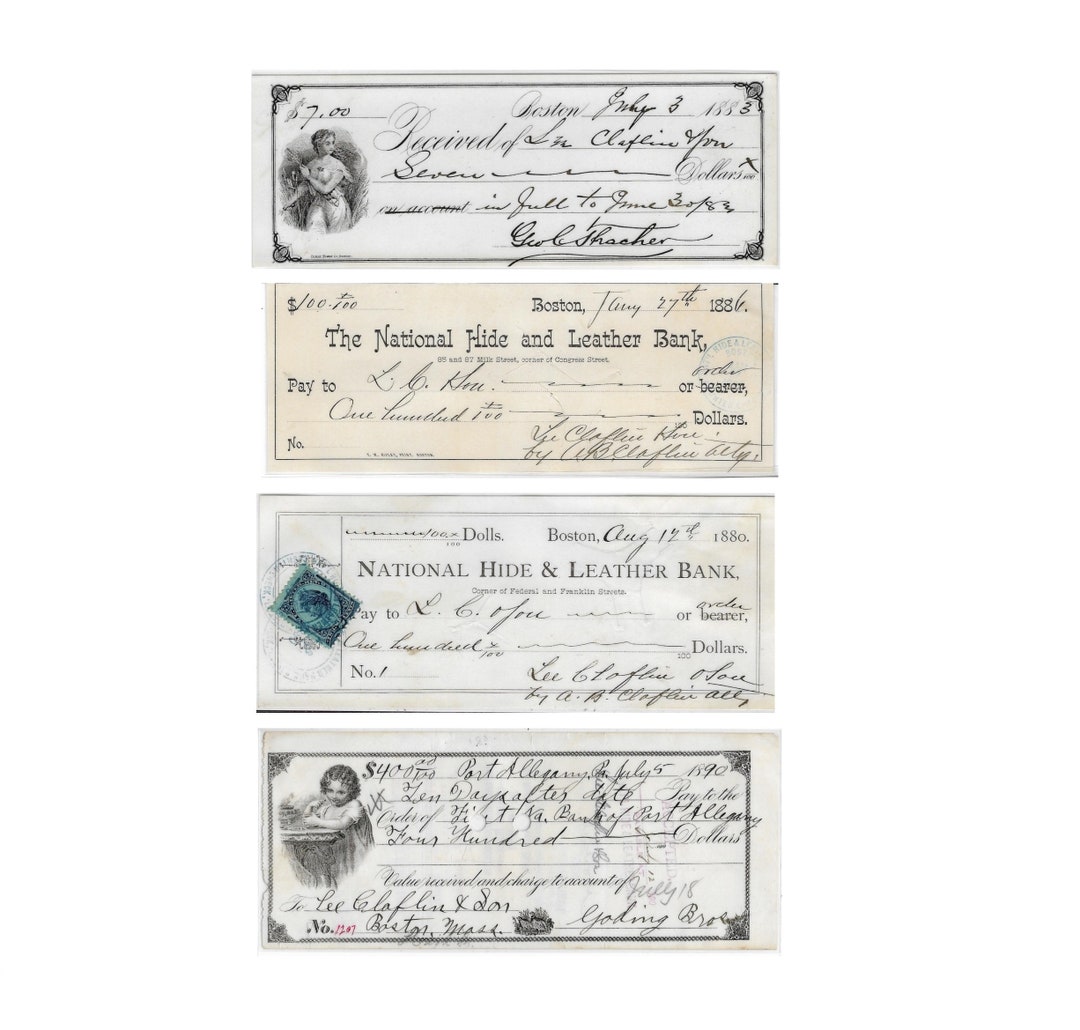 $7.00 Boston July 3 1883
Received of Lee Claflin & Son
Seven Dollars
on account in full to June 30/83
Geo C Thacher
$100.00/100 Boston, Jany 27th 1886.
The National Hide and Leather Bank,
85 and 87 Milk Street, corner of Congress Street.
Pay to L. C. & Son. or bearer, order
One hundred 00/100 Dollars.
100
No. Lee Claflin & Son
by A B Claflin atty.
100 Dolls. Boston, Aug 17th 1880.
100
NATIONAL HIDE & LEATHER BANK,
Corner of Federal and Franklin Streets.
Pay to L. C. & Son or bearer, order
One hundred x/100 Dollars.
100
No. 1 Lee Claflin & Son
by A. B. Claflin atty
$400 00/100 Port Allegany, Pa. July 5 1890
Ten Days after date Pay to the
Order of First Na. Bank of Port Allegany
Four Hundred Dollars
100
Value received and charge to account of
July 18
To Lee Claflin & Son
No. 1207 Boston, Mass. Goding Bros